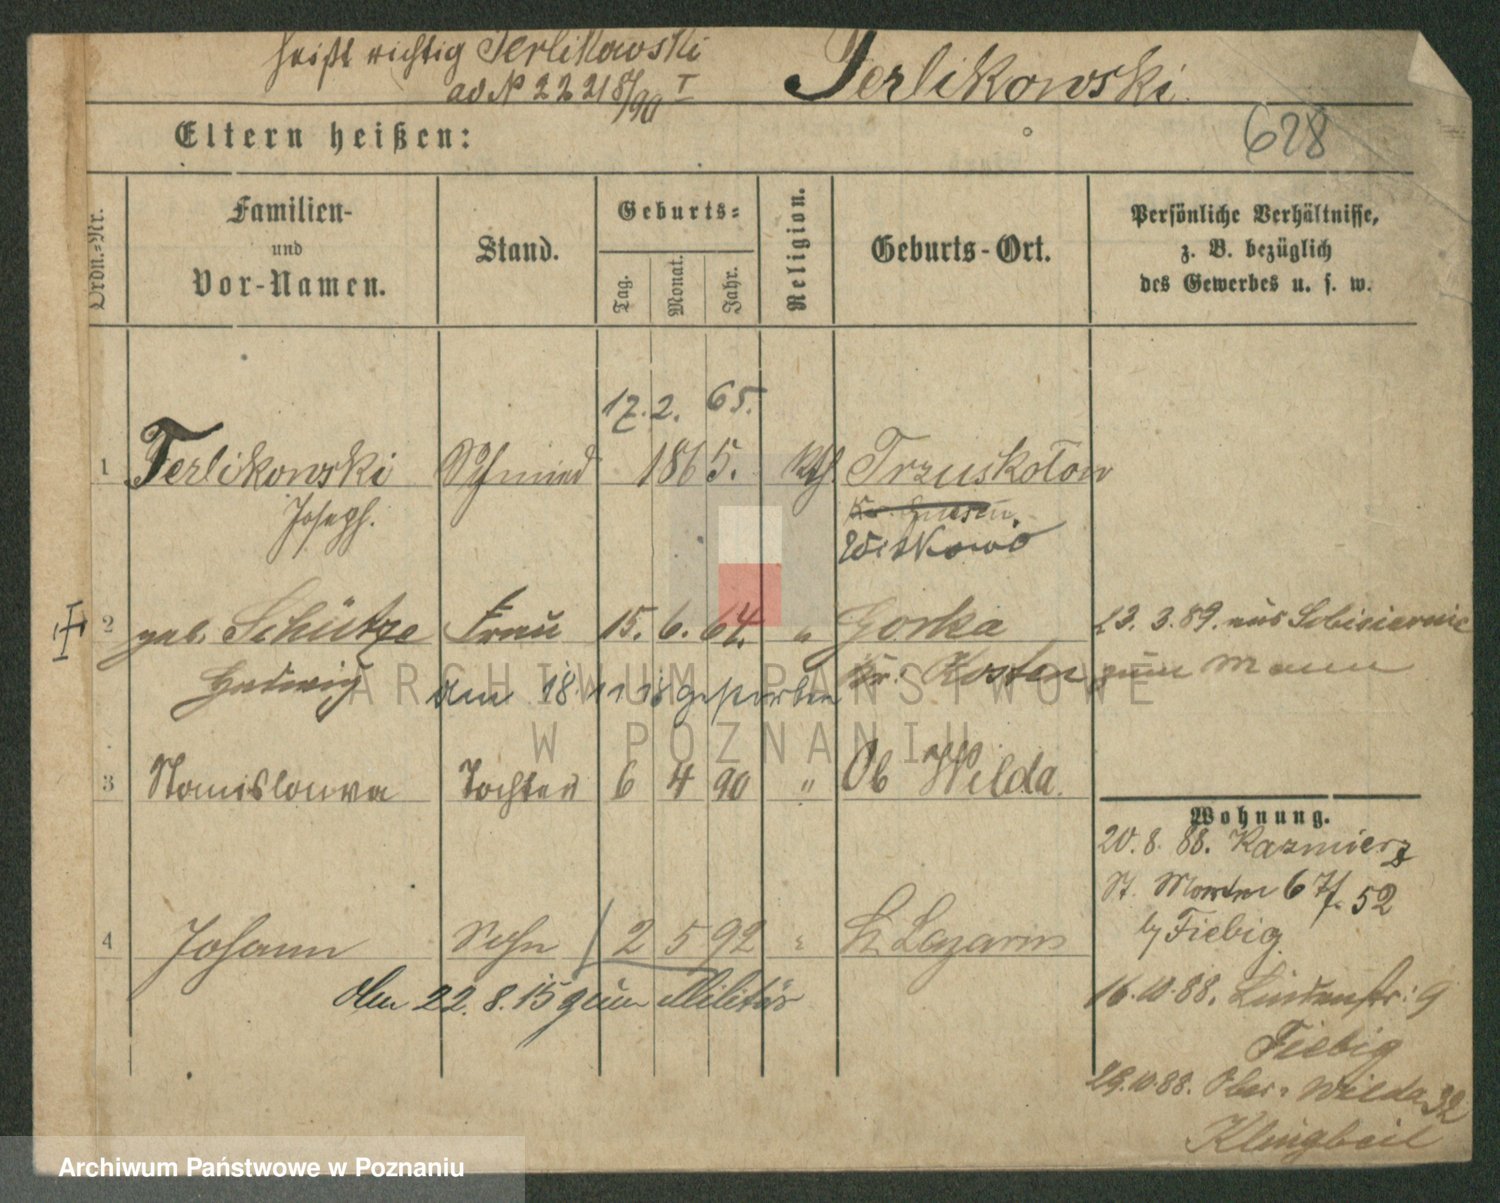 heißt richtig Terlikowski
ad № 22218/90 I
Terlikowski
628
Eltern heißen:
Ordn.-Nr.
Familien-
und
Vor-Namen.
Stand.
Geburts-
Tag.
Monat.
Jahr.
Religion.
Geburts-Ort.
Persönliche Verhältnisse,
z. B. bezüglich
des Gewerbes u. s. w.
17. 2. 65.
1 Terlikowski Schmied 1865. kth. Trzuskołon
Joseph.
Kr. Gnesen.
Witkowo
2 geb. Schütze Frau 15. 6. 64. " Gorka 13. 3. 89. aus Sobisiernie
Hedwig Kr. Kosten zum Mann
den 18 gestorben
3 Stanislawa Tochter 6 4 90 " Ob Wilda.
Wohnung.
20. 8. 88. Kazmierz
St. Martin 67 f. 52
b/ Fiebig
4 Johann Sohn 2 5 92 " St. Lazarus
den 22. 8. 15 zum Militär
16. 10. 88. Lindenstr: 9
Fiebig
29. 10. 88. Ober-Wilda 32
Klingbeil
ARCHIWUM PAŃSTWOWE
W POZNANIU
Archiwum Państwowe w Poznaniu